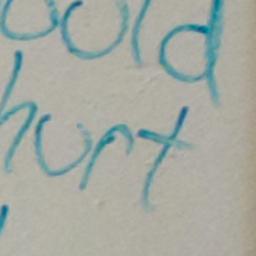 ould
hurt